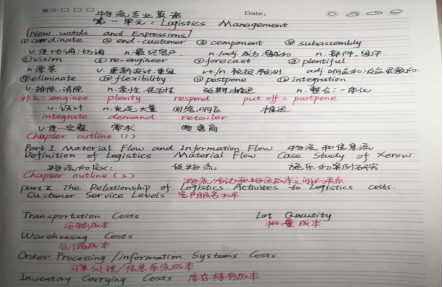 物流专业英语
第一单元: Logistics Management
[New words and Expressions]
①coordinate ②end-customer ③component ④subassembly
v.使协调;协调 n.最终客户 n.部件,组件
⑤vision ⑥re-engineer ⑦forecast ⑧plentiful
n.远景 v.重新设计,重组
⑨eliminate ⑩flexibility postpone integration
v.排除,消除 n.柔性,灵活性 延期,推迟 n.整合;一体化
补充: enginee plenty respond put off = postpone
v.设计 n.充足,大量 回答,响应 推迟
integrate demand retailer
需求 零售商
Chapter outline (1)
Part I Material Flow and Information Flow 物流和信息流
Definition of Logistics Material Flow Case Study of Xerox
物流的定义
Chapter outline (2)
Part II The Relationship of Logistics Activities to Logistics costs.
Customer Service Levels 客户服务水平
Transportation Costs Lot Quantity
运输成本 批量成本
Warehousing Costs
仓储成本
Order Processing/information Systems Costs
订单处理/信息系统成本
Inventory Carrying Costs 库存持有成本